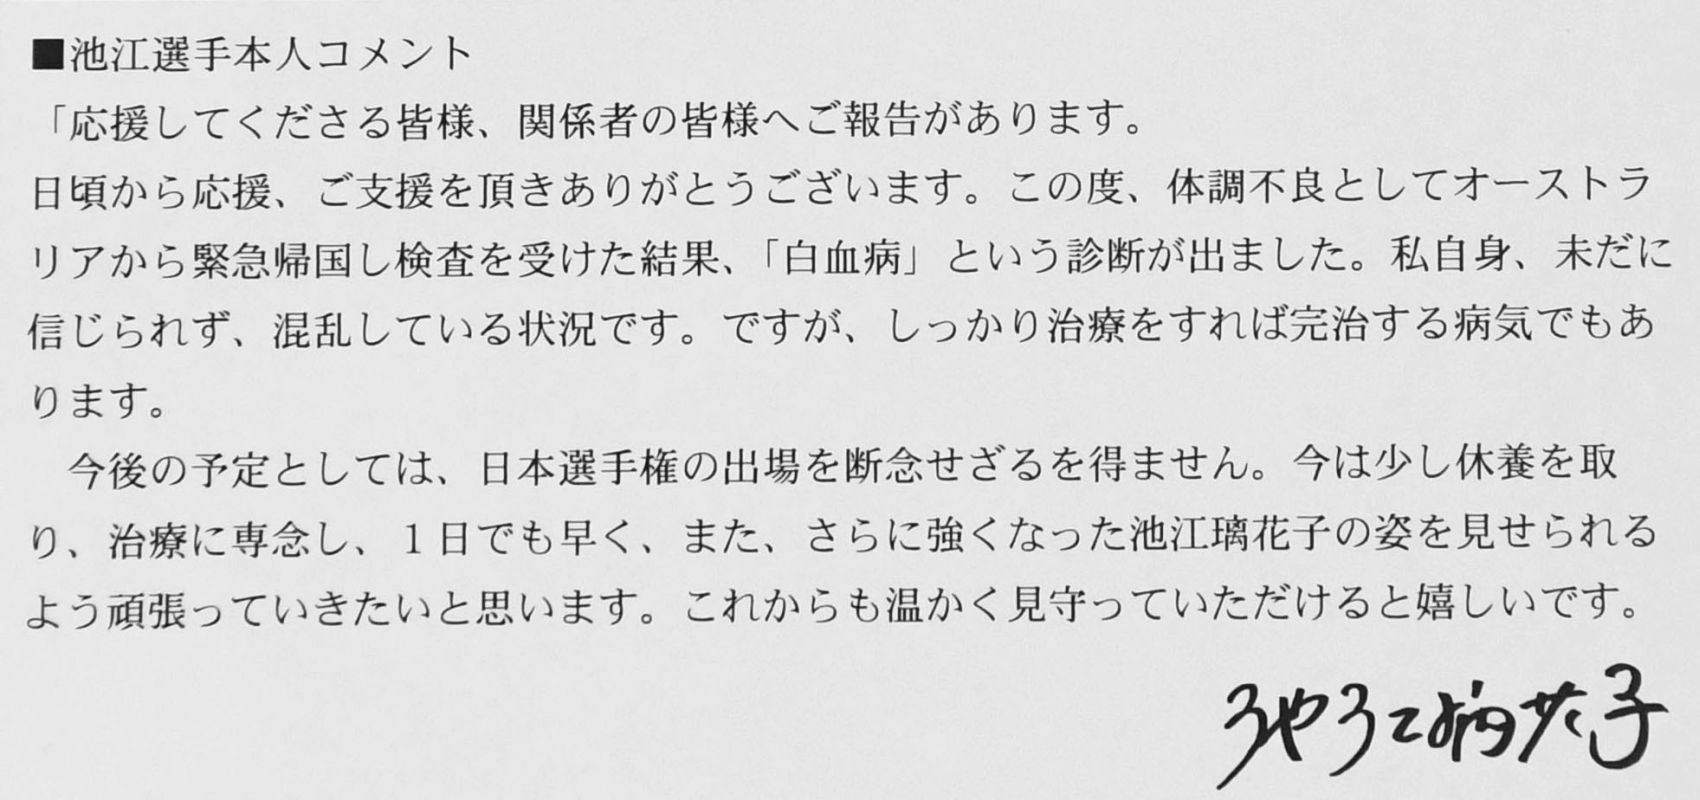 ■池江選手本人コメント
「応援してくださる皆様、関係者の皆様へご報告があります。
日頃から応援、ご支援を頂きありがとうございます。この度、体調不良としてオーストラ
リアから緊急帰国し検査を受けた結果、「白血病」という診断が出ました。私自身、未だに
信じられず、混乱している状況です。ですが、しっかり治療をすれば完治する病気でもあ
ります。
　今後の予定としては、日本選手権の出場を断念せざるを得ません。今は少し休養を取
り、治療に専念し、１日でも早く、また、さらに強くなった池江璃花子の姿を見せられる
よう頑張っていきたいと思います。これからも温かく見守っていただけると嬉しいです。
池江璃花子